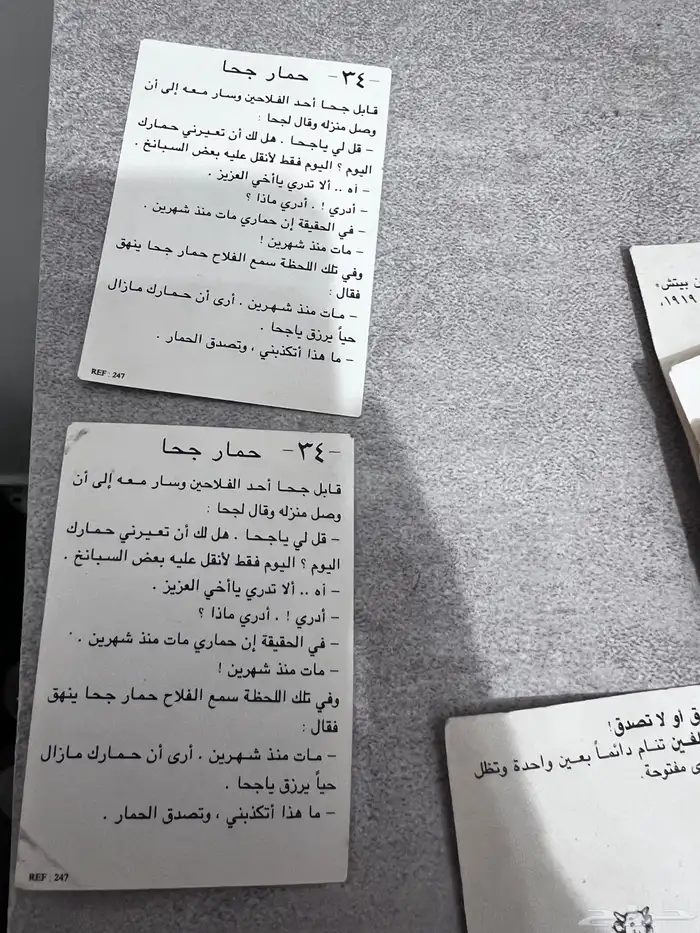 -٣٤- حمار جحا
قابل جحا أحد الفلاحين وسار معه إلى أن
وصل منزله وقال لجحا :
- قل لي ياجحا . هل لك أن تعيرني حمارك
اليوم ؟ اليوم فقط لأنقل عليه بعض السبانخ .
- آه .. ألا تدري ياأخي العزيز .
- أدري ! . أدري ماذا ؟
- في الحقيقة إن حماري مات منذ شهرين .
- مات منذ شهرين !
وفي تلك اللحظة سمع الفلاح حمار جحا ينهق
فقال :
- مات منذ شهرين . أرى أن حمارك مازال
حياً يرزق ياجحا .
- ما هذا أتكذبني ، وتصدق الحمار .
REF : 247
-٣٤- حمار جحا
قابل جحا أحد الفلاحين وسار معه إلى أن
وصل منزله وقال لجحا :
- قل لي ياجحا . هل لك أن تعيرني حمارك
اليوم ؟ اليوم فقط لأنقل عليه بعض السبانخ .
- آه .. ألا تدري ياأخي العزيز .
- أدري ! . أدري ماذا ؟
- في الحقيقة إن حماري مات منذ شهرين .
- مات منذ شهرين !
وفي تلك اللحظة سمع الفلاح حمار جحا ينهق
فقال :
- مات منذ شهرين . أرى أن حمارك مازال
حياً يرزق ياجحا .
- ما هذا أتكذبني ، وتصدق الحمار .
REF : 247
بيتش»
١٩١٩،
او لا تصدق!
تنام دائماً بعين واحدة وتظل
مفتوحة.